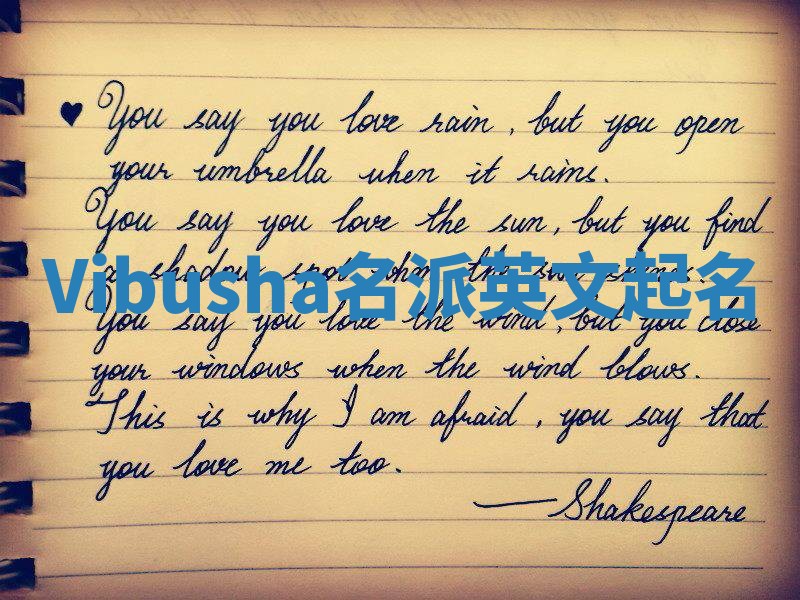 ♥ You say you love rain, but you open
your umbrella when it rains.
You say you love the sun, but you find
a shadow spot when the sun shines.
Vibusha名派英文起名
You say you love the wind, but you close
your windows when the wind blows.
This is why I am afraid, you say that
you love me too.
—Shakespeare